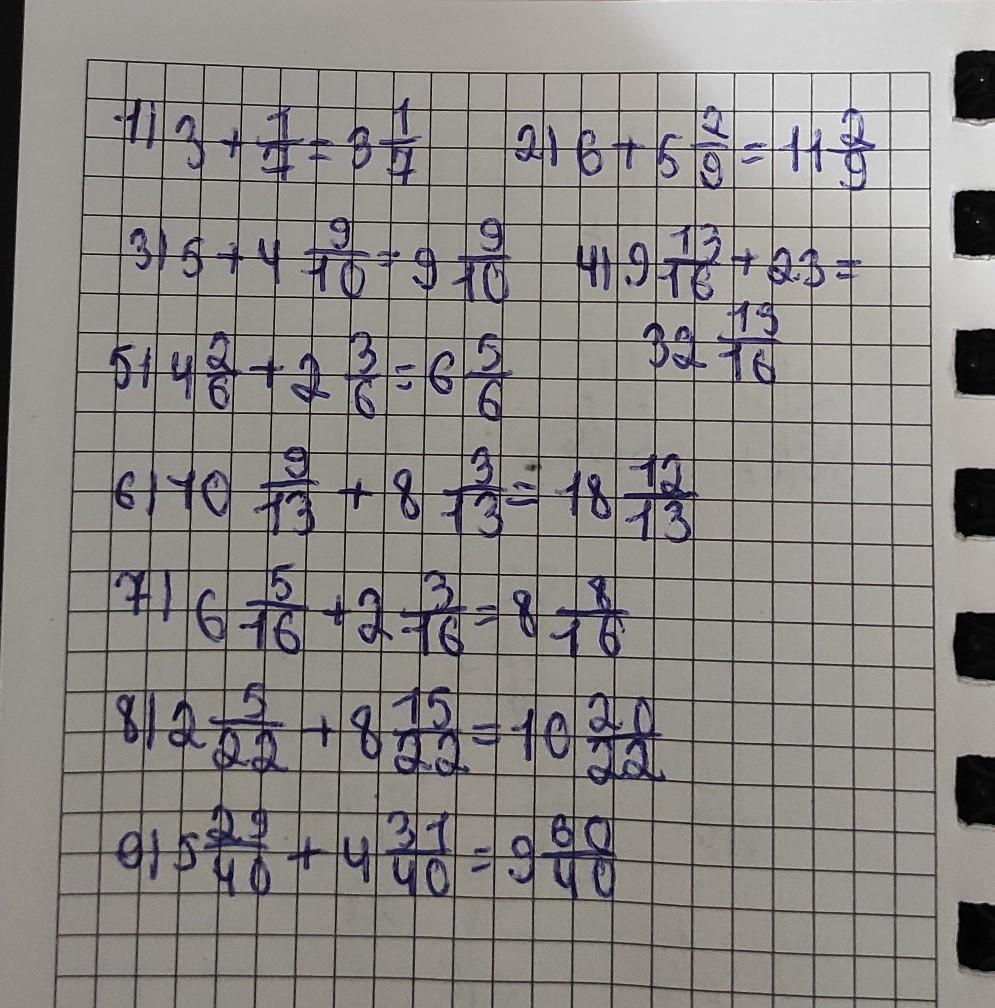 1) 3 + 1/7 = 3 1/7 2) 6 + 5 2/9 = 11 2/9
3) 5 + 4 9/10 = 9 9/10 4) 9 13/16 + 23 =
32 13/16
5) 4 2/6 + 2 3/6 = 6 5/6
6) 10 9/13 + 8 3/13 = 18 12/13
7) 6 5/16 + 2 3/16 = 8 8/16
8) 2 5/22 + 8 15/22 = 10 20/22
9) 5 29/40 + 4 31/40 = 9 60/40